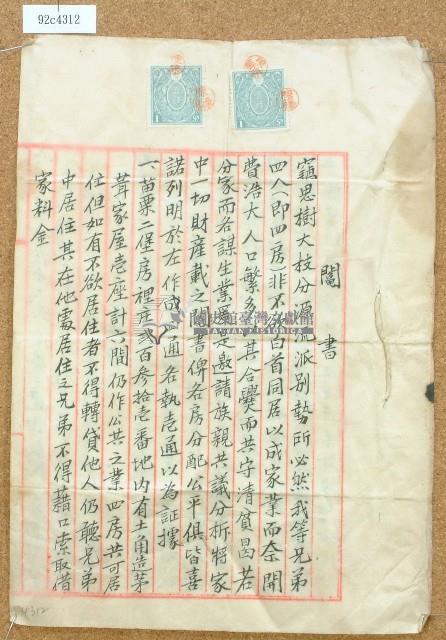 92c4312
鬮書
竊思樹大枝分源流派別勢所必然我等兄弟
四人(即四房)非不欲白首同居以成家業而奈開
費浩大人口繁多與其合爨而共守清貧曷若
分家而各謀生業爰是邀請族親共議分析將家
中一切財產載之鬮書俾各房分配公平俱皆喜
諾列明於左作成通各執壹通以為証據
一苗栗二堡房裡庄貳百參拾壹番地內有土角造茅
葺家屋壱座計六間仍作公共之業四房共可居
住但如有不欲居住者不得轉貸他人仍聽兄弟
中居住其在他處居住之兄弟不得藉口索取借
家料金
國史館臺灣文獻館
TAIWAN HISTORICA
4312